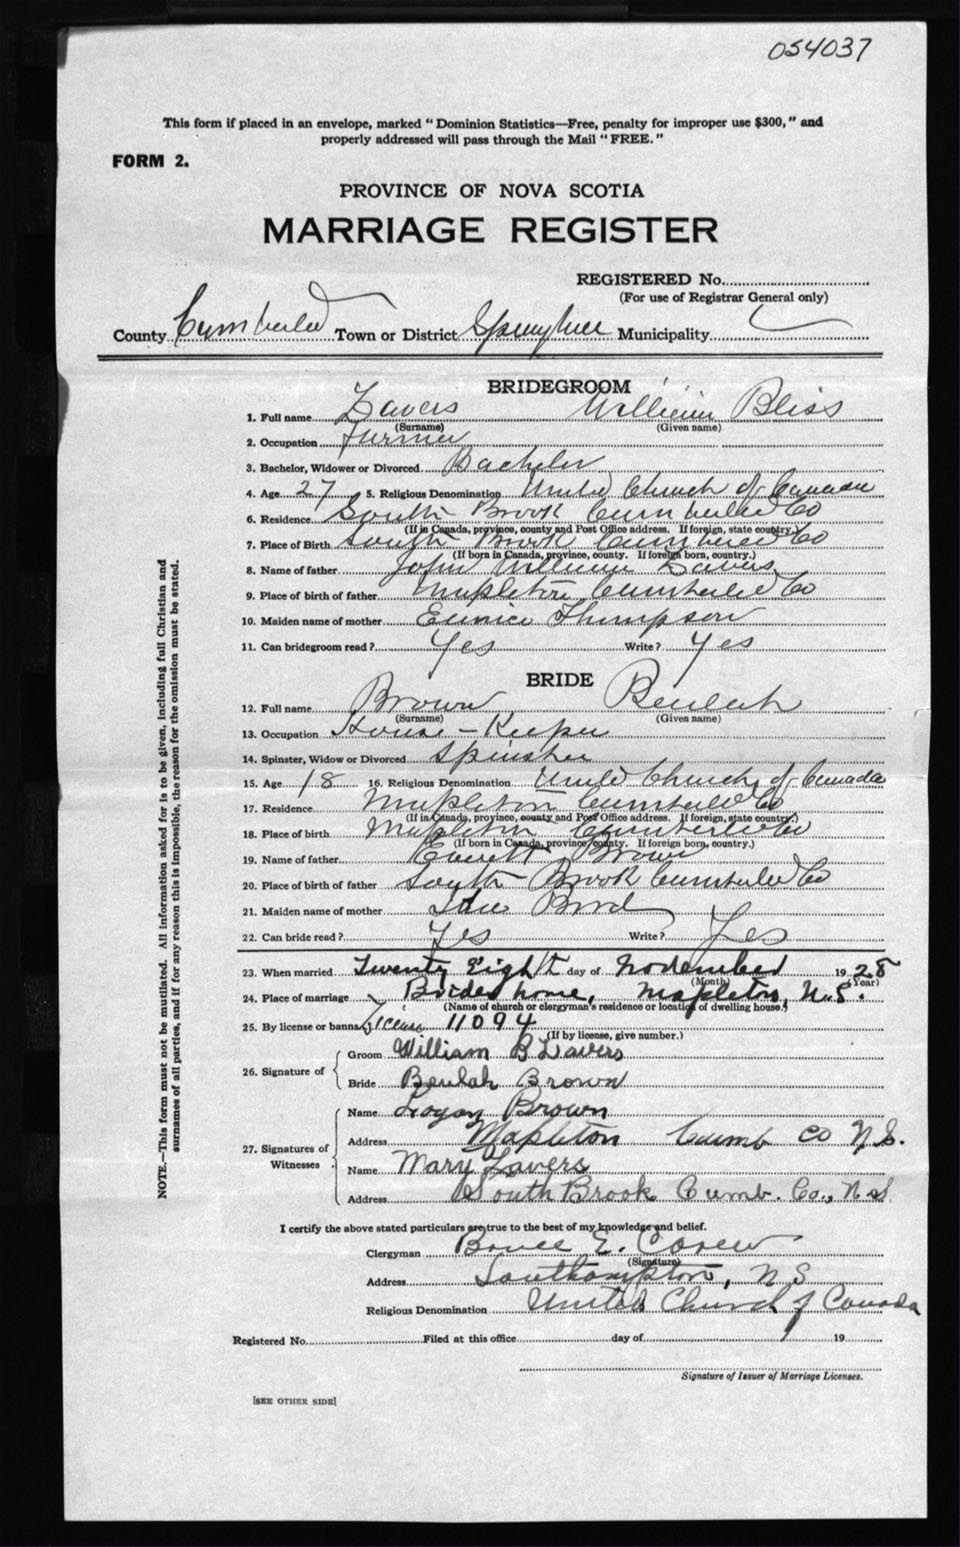 054037
This form if placed in an envelope, marked “Dominion Statistics—Free, penalty for improper use $300,” and
properly addressed will pass through the Mail “FREE.”
FORM 2.
PROVINCE OF NOVA SCOTIA
MARRIAGE REGISTER
REGISTERED No.
(For use of Registrar General only)
County Cumberland Town or District Springhill Municipality
BRIDEGROOM
1. Full name Lavers William Bliss
(Surname) (Given name)
2. Occupation Farmer
3. Bachelor, Widower or Divorced Bachelor
4. Age 27 5. Religious Denomination United Church of Canada
6. Residence South Brook Cumberland Co
(If in Canada, province, county and Post Office address. If foreign, state country.)
7. Place of Birth South Brook Cumberland Co
(If born in Canada, province, county. If foreign born, country.)
8. Name of father John William Lavers
9. Place of birth of father Mapleton Cumberland Co
10. Maiden name of mother Eunice Thompson
11. Can bridegroom read? Yes Write? Yes
BRIDE
12. Full name Brown Beulah
(Surname) (Given name)
13. Occupation House-Keeper
14. Spinster, Widow or Divorced Spinster
15. Age 18 16. Religious Denomination United Church of Canada
17. Residence Mapleton Cumberland Co
(If in Canada, province, county and Post Office address. If foreign, state country.)
18. Place of birth Mapleton Cumberland Co
(If born in Canada, province, county. If foreign born, country.)
19. Name of father Everett Brown
20. Place of birth of father South Brook Cumberland Co
21. Maiden name of mother
22. Can bride read? Yes Write? Yes
23. When married Twenty Eight day of November 1928
(Month) (Year)
24. Place of marriage Brides home, Mapleton, N.S.
(Name of church or clergyman's residence or location of dwelling house.)
25. By license or banns License 11094
(If by license, give number.)
26. Signature of
Groom William B Lavers
Bride Beulah Brown
27. Signatures of Witnesses
Name Logan Brown
Address Mapleton Cumb Co N.S.
Name Mary Lavers
Address South Brook Cumb. Co., N.S
I certify the above stated particulars are true to the best of my knowledge and belief.
Clergyman Bruce E.
(Signature)
Address Southampton, N.S
Religious Denomination United Church of Canada
Registered No. Filed at this office day of 19
Signature of Issuer of Marriage Licenses.
[SEE OTHER SIDE]
NOTE.—This form must not be mutilated. All information asked for is to be given, including full Christian and
surnames of all parties, and if for any reason this is impossible, the reason for the omission must be stated.